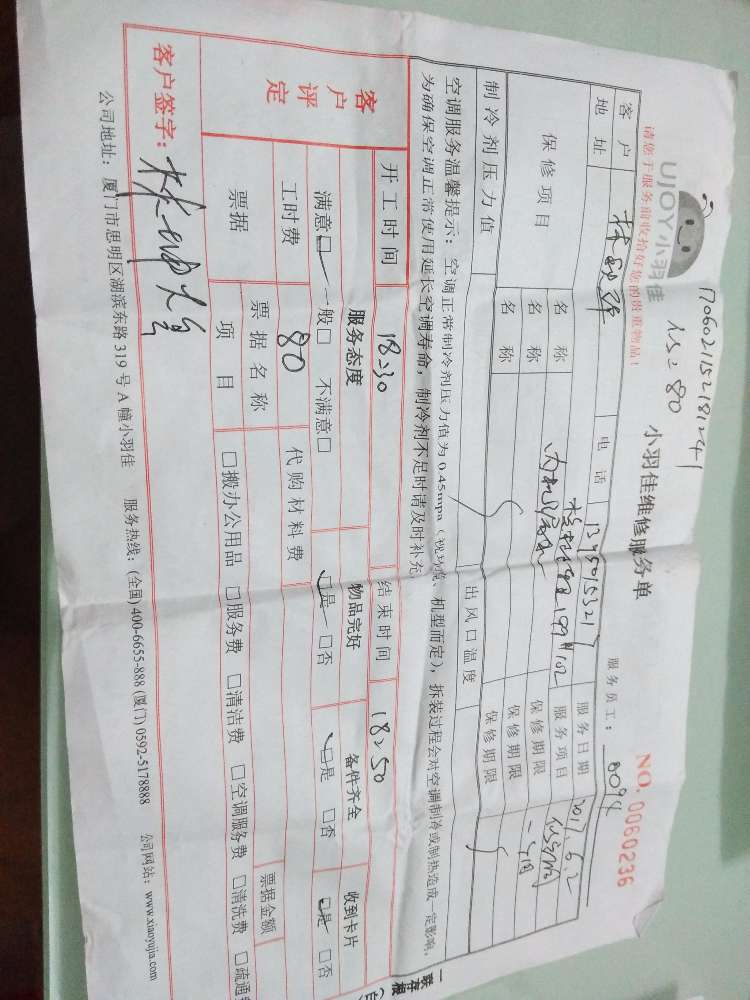 170602152181241
80
UJOY小羽佳
小羽佳维修服务单
NO. 0060236
请您于服务前收拾好您的贵重物品!
服务员工: 0094
客户 电话 服务日期 2017.6.2
地址 服务项目
保修项目 名称 保修期限 一个月
名称 保修期限
名称 保修期限
制冷剂压力值 出风口温度
空调服务温馨提示: 空调正常制冷剂压力值为0.45mpa (视环境、机型而定), 拆装过程会对空调制冷或制热造成一定影响,
为确保空调正常使用延长空调寿命, 制冷剂不足时请及时补充
开工时间 18:30 结束时间 18:50
客户评定 服务态度 物品完好 备件齐全 收到卡片
满意□ 一般□ 不满意□ □是 □否 □是 □否 □是 □否
工时费 80 代购材料费
票据 票据名称 票据金额
项目 □搬办公用品 □服务费 □清洁费 □空调服务费 □清洗费 □疏通
客户签字:
公司地址: 厦门市思明区湖滨东路319号A幢小羽佳 服务热线: (全国) 400-6655-888 (厦门) 0592-5178888 公司网站: www.xiaoyujia.com
一联存根